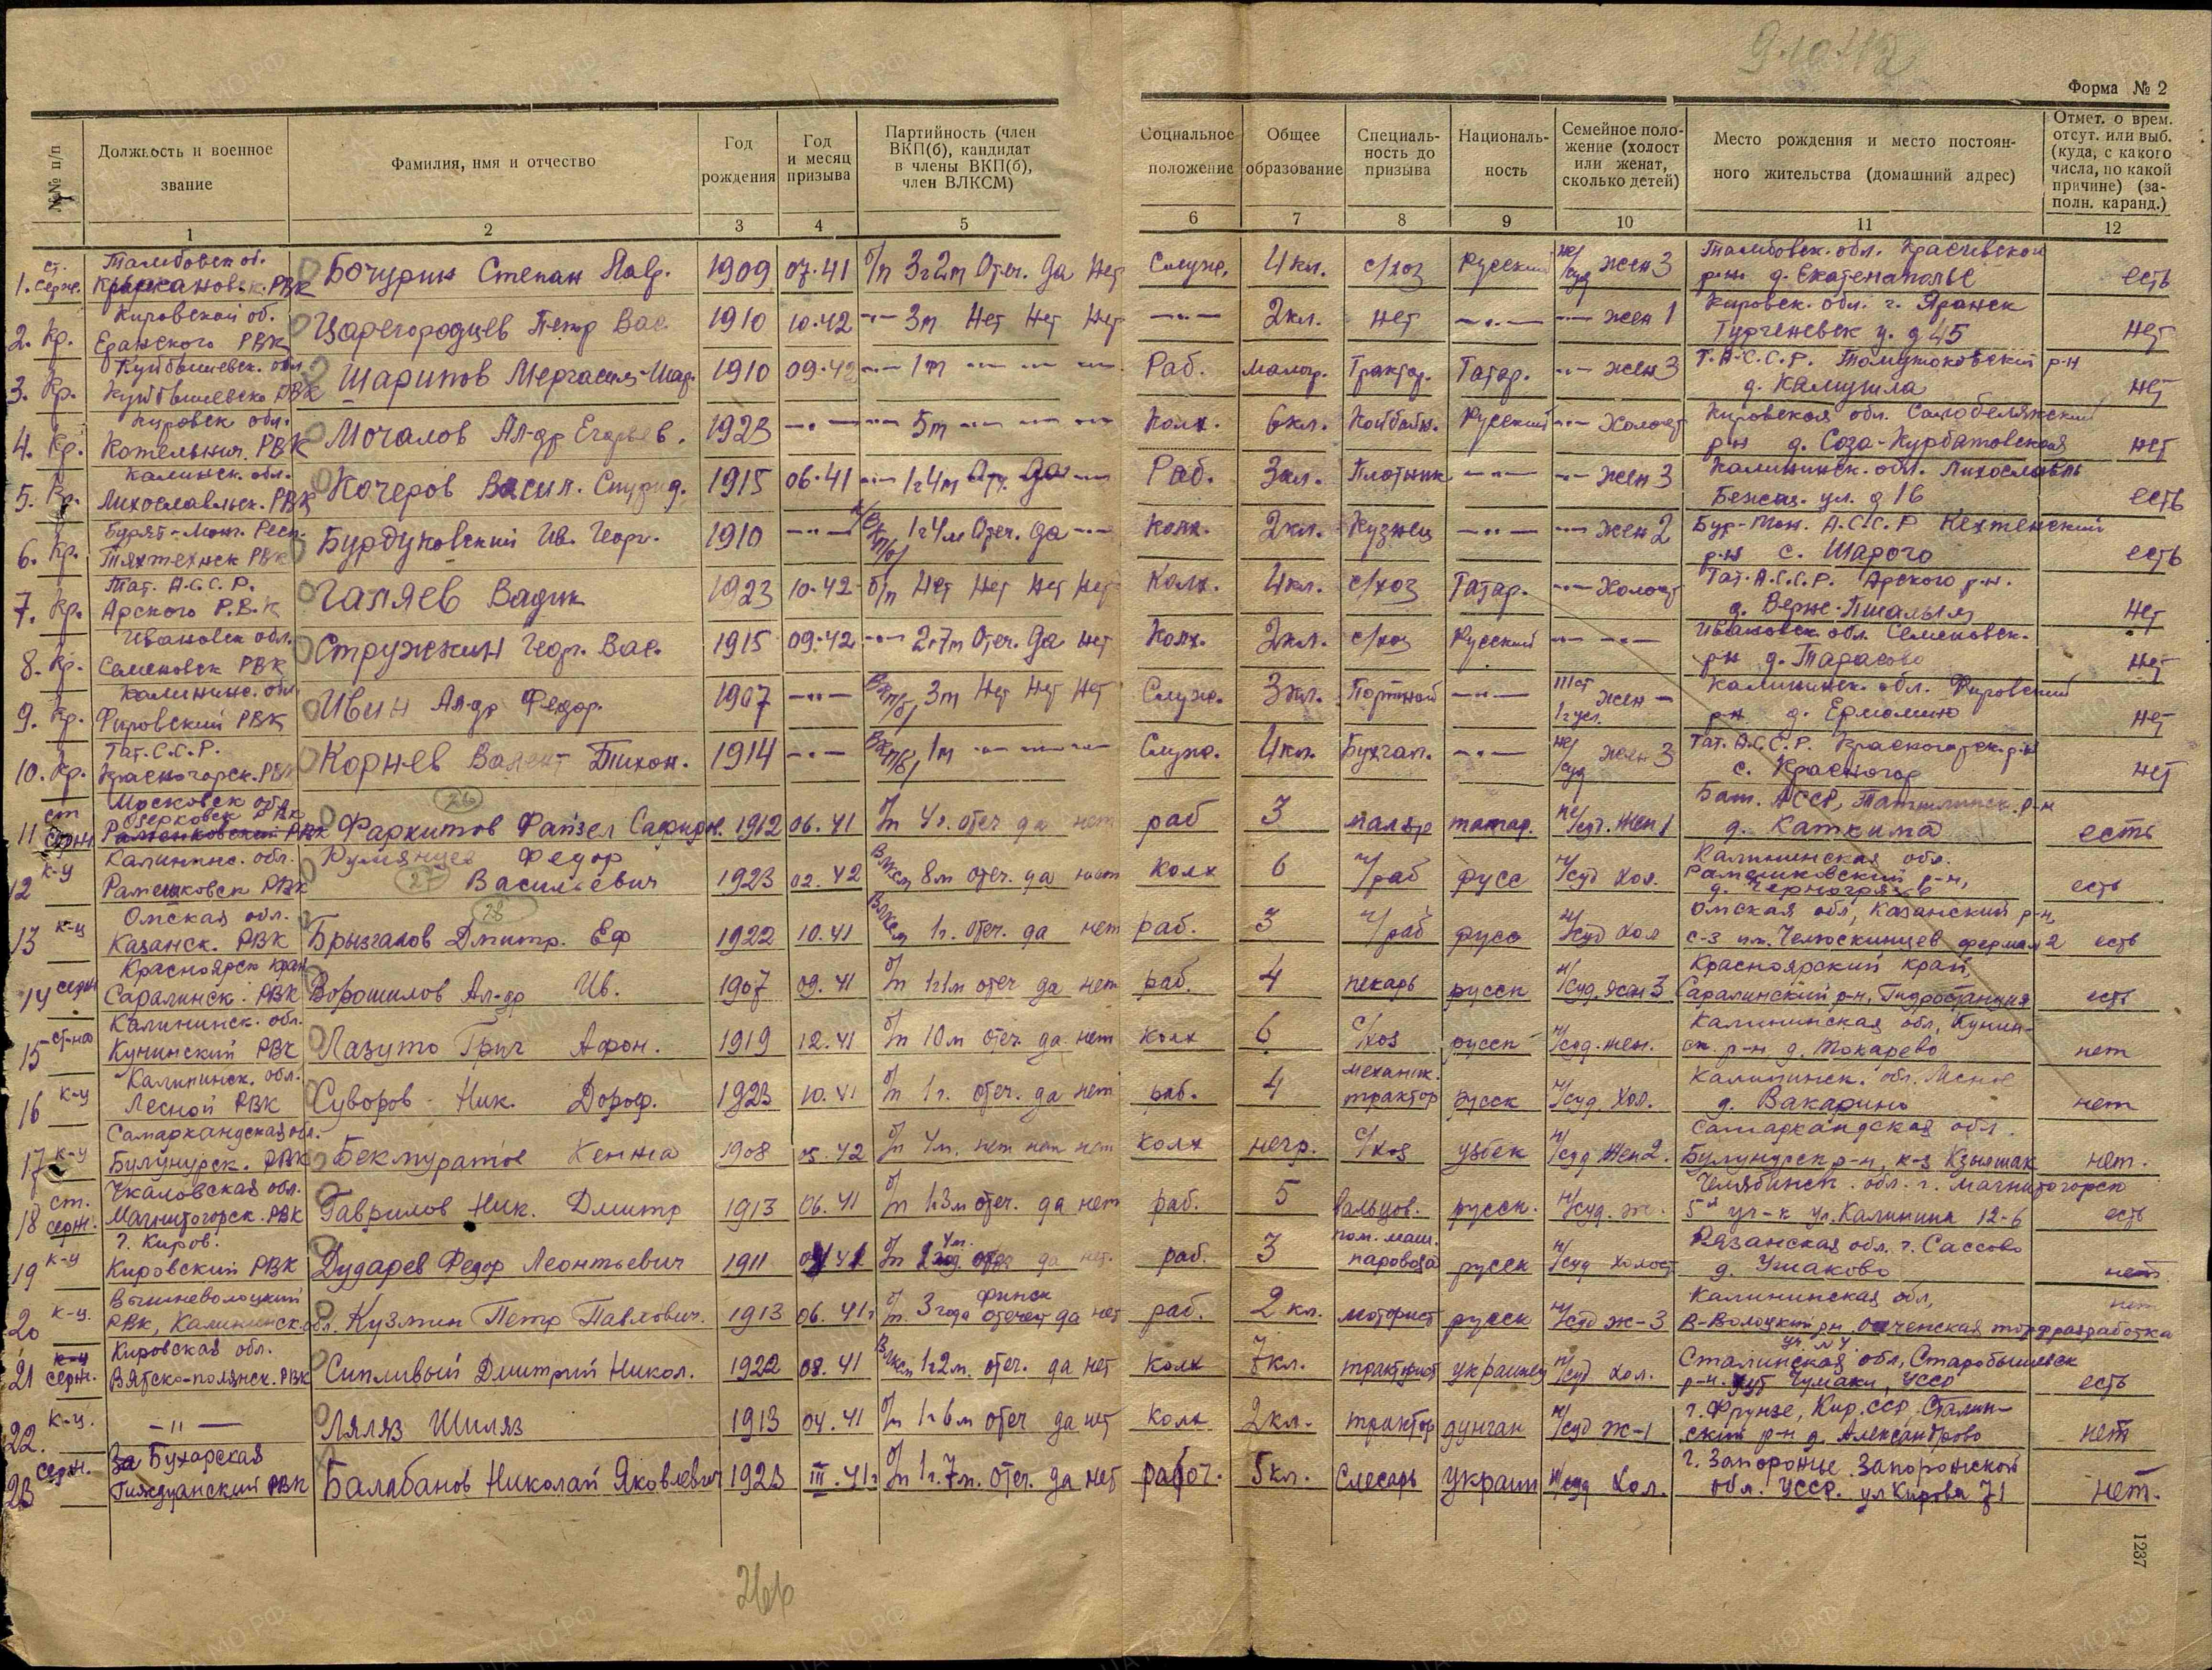 9.10.42
Форма № 2
№№ п/п
Должность и военное звание
Фамилия, имя и отчество
Год рождения
Год и месяц призыва
Партийность (член ВКП(б), кандидат в члены ВКП(б), член ВЛКСМ)
Социальное положение
Общее образование
Специальность до призыва
Национальность
Семейное положение (холост или женат, сколько детей)
Место рождения и место постоянного жительства (домашний адрес)
Отмет. о врем. отсут. или выб. (куда, с какого числа, по какой причине) (заполн. каранд.)
1 2 3 4 5 6 7 8 9 10 11 12
1. ст. серж. Тамбовск об. РВК Бочурин Степан Павл. 1909 07.41 б/п 3г2м Отеч. Да Нет Служ. 4кл. с/хоз Русский не/суд жен 3 Тамбовск. обл. р-н д. есть
2. Кр. Кировской об. Еранского РВК Царегородцев Петр Вас. 1910 10.42 —"— 3м Нет Нет Нет —"— 2кл. нет —"— —"— жен 1 Кировск. обл. г. Яранск Тургеневск у. д 45 нет
3. Кр. Куйбышевск. обл. Куйбышевско РВК Шарипов 1910 09.42 —"— 1м —"— —"— —"— Раб. малогр. Трактор. Татар. —"— жен 3 Т.А.С.С.Р. р-н д. нет
4. Кр. Кировск обл. Котельнич. РВК Мочалов Ал-др 1923 —"— —"— 5м —"— —"— —"— Колх. 6кл. Русский —"— Холост Кировская обл. р-н д. нет
5. Кр. Калинск. обл. Лихославльск. РВК Кочеров Васил. Спирид. 1915 06.41 —"— 1г4м Отч. Да —"— Раб. 3кл. Плотник —"— —"— жен 3 Калининск. обл. Лихославль ул. д 16 есть
6. Кр. Бурят-Мон. Респ. РВК Бурдуковский Ив. Георг. 1910 —"— к/ВКП/б/ 1г4м Отеч. Да —"— Колх. 2кл. Кузнец —"— —"— жен 2 Бур-Мон. А.С.С.Р р-н с. есть
7. Кр. Тат. А.С.С.Р. Арского Р.В.К Галяев Вадик 1923 10.42 б/п Нет Нет Нет Нет Колх. 4кл. с/хоз Татар. —"— Холост Тат. А.С.С.Р. Арского р-н. д. нет
8. Кр. Ивановск обл. Семеновск РВК Стружкин Геор. Вас. 1915 09.42 —"— 2г7м Отеч. Да нет Колх. 2кл. с/хоз Русский —"— —"— Ивановск обл Семеновск. р-н д. Тарасово нет
9. Кр. Калининс. обл Фировский РВК Ивин Ал-др Федор. 1907 —"— ВКП/б/ 3м Нет Нет Нет Служ. 3кл. Портной —"— жен — Калининск. обл. Фировский р-н д. Ермолино нет
10. Кр. Тат. С.С.Р. Красногорск. РВК Корнев Валент Тихон. 1914 —"— ВКП/б/ 1м —"— —"— —"— Служ. 4кл. Бухгал. —"— не/суд жен 3 Тат. А.С.С.Р. Красногорск. р-н с. Красногор нет
26
11 ст серж Московск обл Озерковск РВК Раменковский РВК 1912 06.41 б/п 4г. отеч да нет раб 3 маляр татар. не/суд. жен 1 Баш. АССР, р-н д. есть
12 к-ц Калининс. обл. Рамешковск РВК Румянцев Федор Васильевич 27 1923 02.42 Влксм 8м отеч. да нет колх 6 ч/раб русс н/суд хол. Калининская обл. Рамешковский р-н, д. Черногрязье есть
28
13 к-ц Омская обл. Казанск. РВК Брызгалов Дмитр. Еф 1922 10.41 Влксм 1г. отеч. да нет раб. 3 ч/раб русс н/суд хол Омская обл, Казанский р-н, с-з им. Челюскинцев ферма 2 есть
14 серж Красноярск край Саралинск. РВК Ворошилов Ал-др Ив. 1907 09.41 б/п 1г1м отеч да нет раб. 4 пекарь русск н/суд. жен 3 Красноярский край, Саралинский р-н, Гидростанция есть
15 Калининск. обл. Кунинский РВК Лазуто Григ Афон. 1919 12.41 б/п 10м отеч. да нет колх 6 с/хоз русск н/суд. жен. Калининская обл, Кунинск. р-н д. Токарево нет
16 к-ц Калининск. обл. Лесной РВК Суворов Ник. Дороф. 1923 10.41 б/п 1г. отеч. да нет раб. 4 механик. трактор русск н/суд. хол. Калининск. обл. Лесное д. Вакарино нет
17 к-ц Самаркандская обл. Булунурск. РВК Бекмуратов Кенжа 1908 05.42 б/п 4м. нет нет нет колх негр. с/хоз узбек н/суд жен 2. Самаркандская обл. Булунурск р-н, к-з Кзылшак нет.
18 ст. серж. Чкаловская обл. Магнитогорск. РВК Гаврилов Ник. Дмитр 1913 06.41 б/п 1г3м отеч. да нет раб. 5 вальцов. русск. н/суд. ж. Челябинск. обл. г. Магнитогорск 5й уч-к ул. Калинина 12-6 есть
19 к-ц г. Киров. Кировский РВК Дударев Федор Леонтьевич 1911 41 б/п 4м. да нет. раб. 3 пом. маш. паровоза русск н/суд холост Рязанская обл. г. Сассово д. Ушаково нет
20 к-ц. Вышневолоцкий РВК, Калининск. обл. Кузмин Петр Павлович. 1913 06.41г б/п. 3 года финск отечест да нет раб. 2 кл. моторист русск н/суд ж-3 Калининская обл, В-Волоцкий рн. торфразработка уч. № 4. нет
21 к-ц серж. Кировская обл. Вятско-полянск. РВК Сипливый Дмитрий Никол. 1922 08.41 Влксм 1г2м. отеч. да нет колх 7кл. тракторист украинец н/суд хол. Сталинская обл, Старобышевск р-н. хут Чумаки, УССР есть
22. к-ц. —"— Ляляз Шиляз 1913 04.41 б/п 1г6м отеч да нет колх 2кл. трактор дунган н/суд ж-1 г. Фрунзе, Кир. ССР, Сталинский р-н д. Александрово нет
23 серж. Бухарская Гиждуанский РВК Балабанов Николай Яковлевич 1923 III.41г б/п 1г.7м. Отеч. да нет рабоч. 5кл. Слесарь украин н/суд Хол. г. Запорожье Запорожской обл. УССР. ул Кирова 71 нет.
1237
266